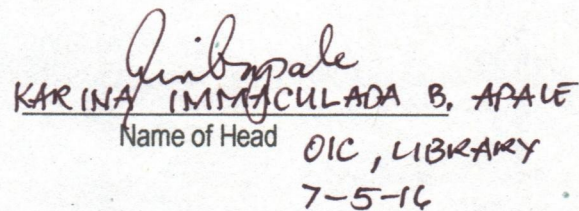 KARINA IMMACULADA B. APALE
Name of Head
OIC, LIBRARY
7-5-16